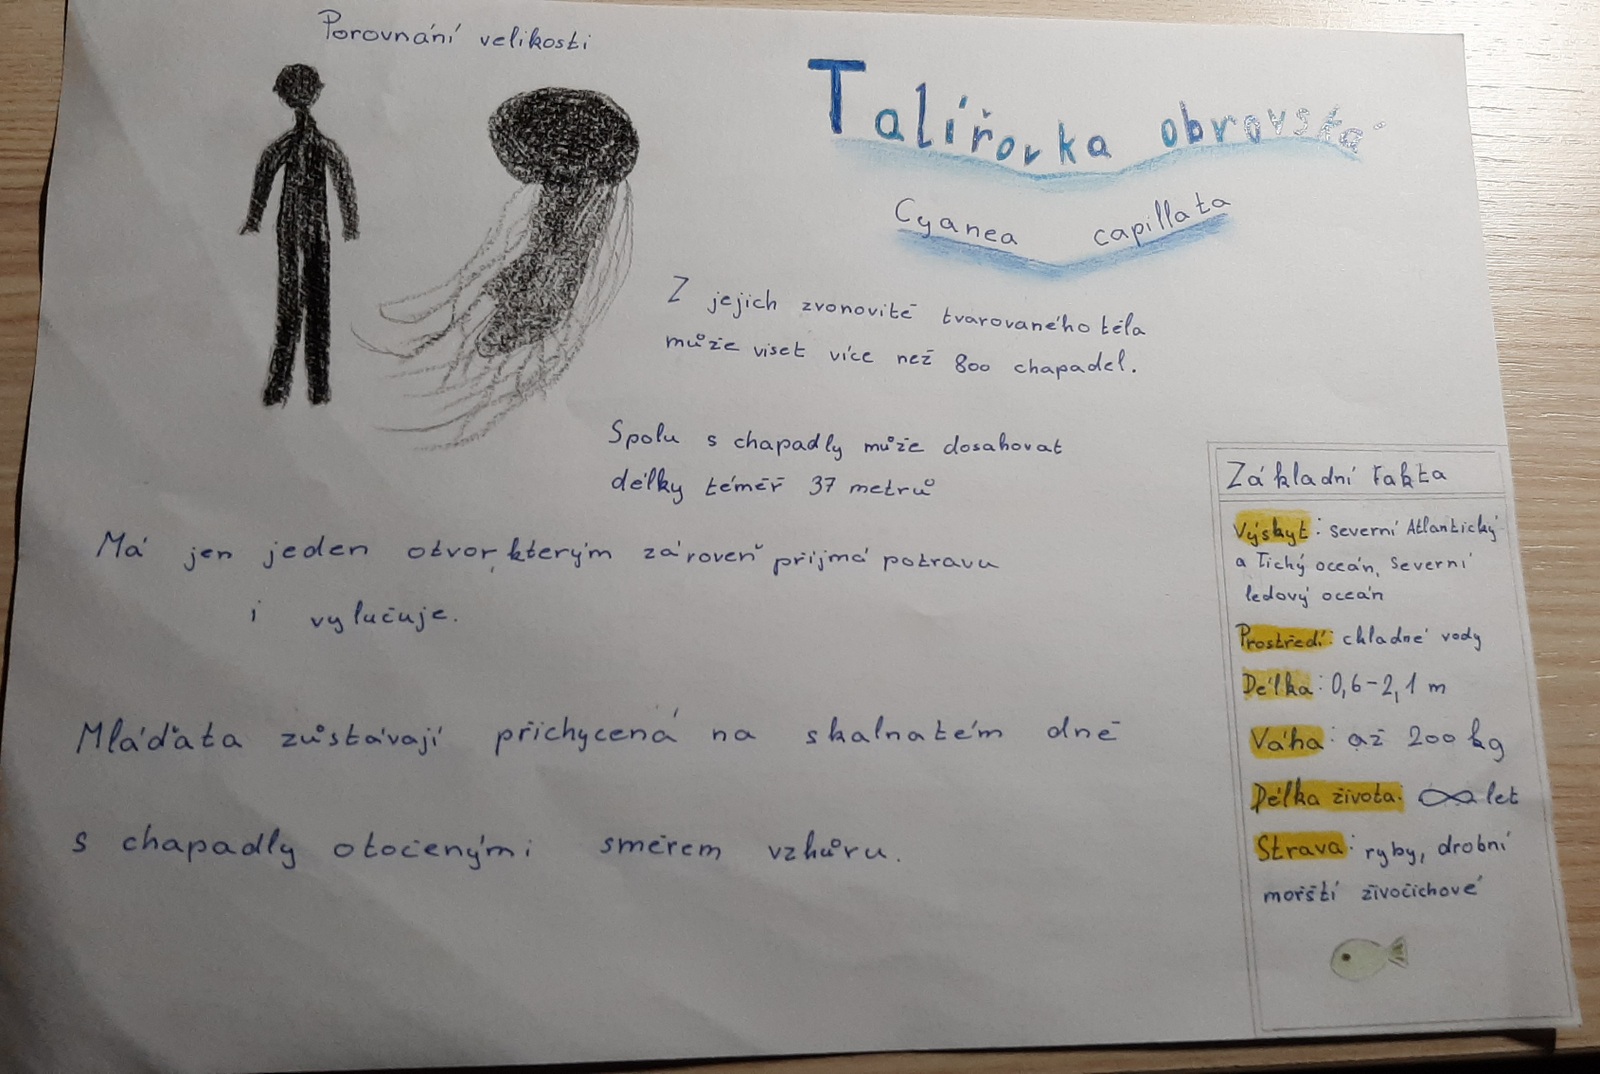 Porovnání velikosti
Talířovka obrovská
Cyanea capillata
Z jejich zvonovitě tvarovaného těla
může viset více než 800 chapadel.
Spolu s chapadly může dosahovat
délky téměř 37 metrů
Má jen jeden otvor, kterým zároveň přijmá potravu
i vylučuje.
Mláďata zůstávají přichycená na skalnatém dně
s chapadly otočenými směrem vzhůru.
Základní fakta
Výskyt: severní Atlantický
a Tichý oceán, Severní
ledový oceán
Prostředí: chladné vody
Délka: 0,6-2,1 m
Váha: až 200 kg
Délka života: ∞ let
Strava: ryby, drobní
mořští živočichové